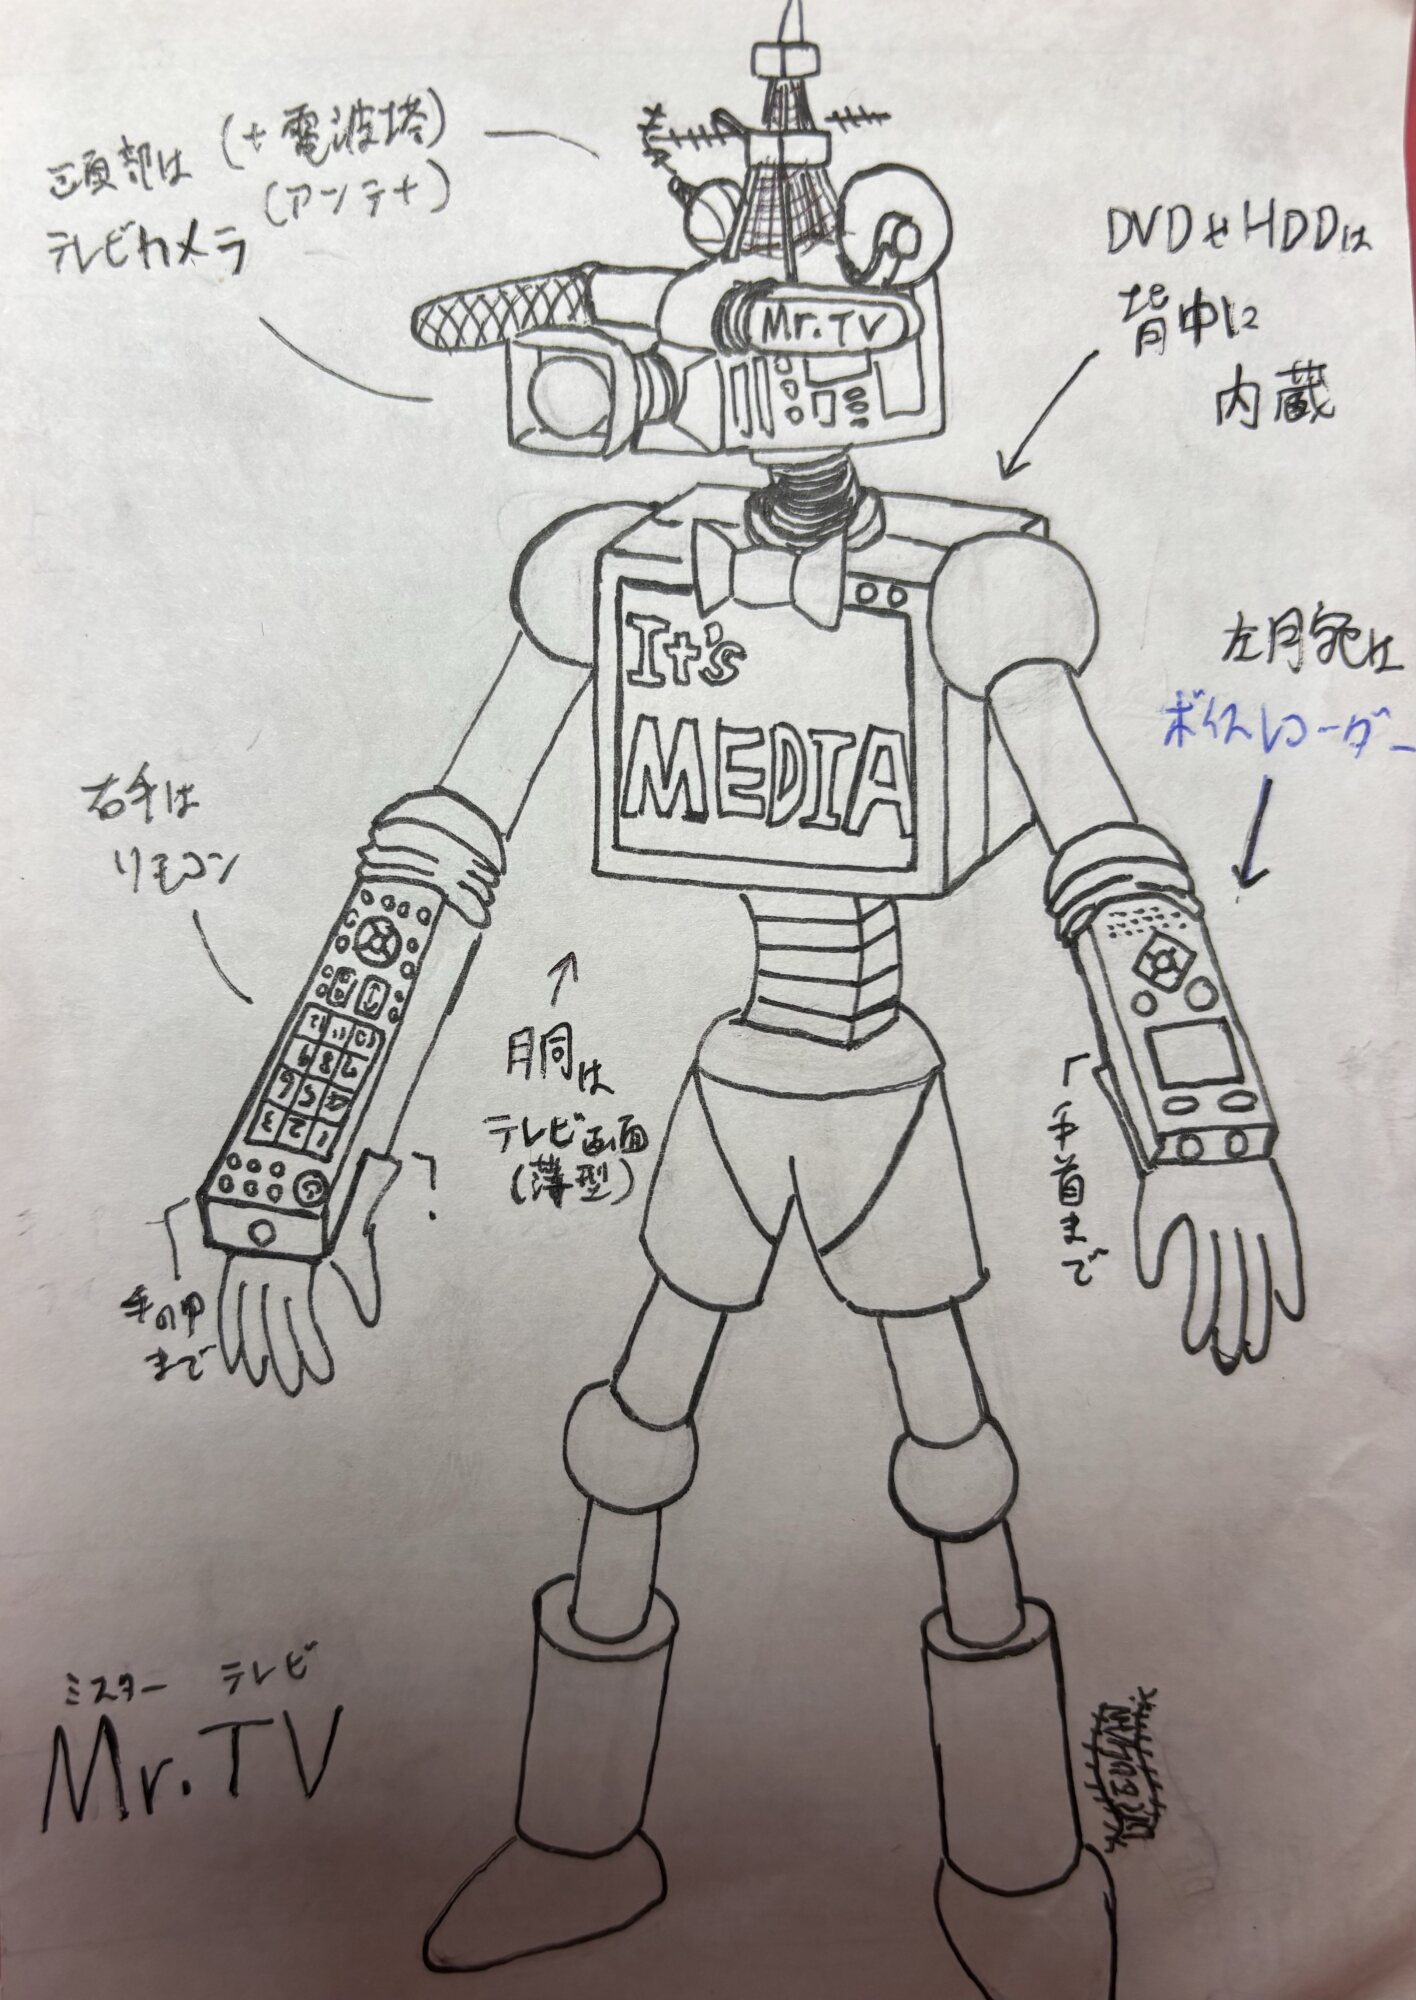 頭部は (+電波塔)
テレビカメラ (アンテナ)
DVDやHDDは
背中に
内蔵
Mr.TV
It's
MEDIA
左腕は
ボイスレコーダー
右手は
リモコン
胴は
テレビ画面
(薄型)
手首まで
?
手の甲
まで
12 11 10
9 8 7
6 5 4
3 2 1
ミスター テレビ
Mr.TV